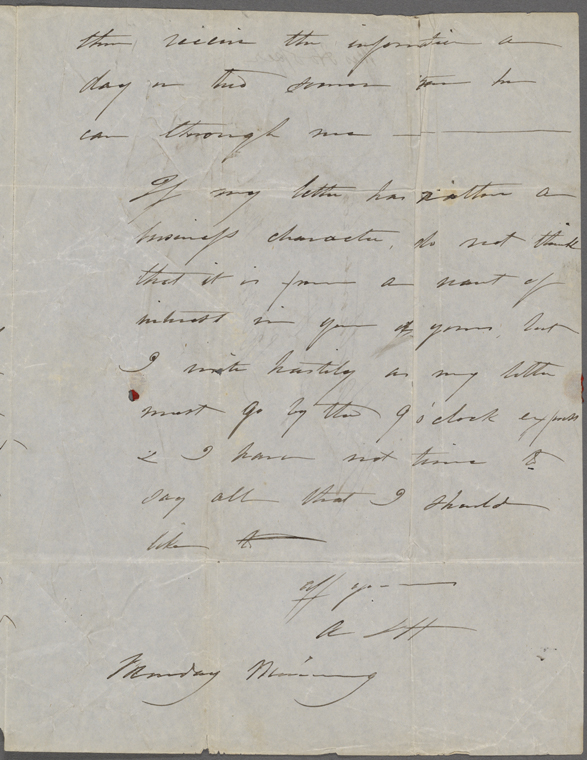 then receive the information a
day or two sooner than he
can through me —
If my letter has rather a
business character, do not think
that it is from a want of
interest in you & yours, but
I write hastily as my letter
must go by the 9 o'clock express
& I have not time to
say all that I should
like to
aff yrs
A
Monday Morning